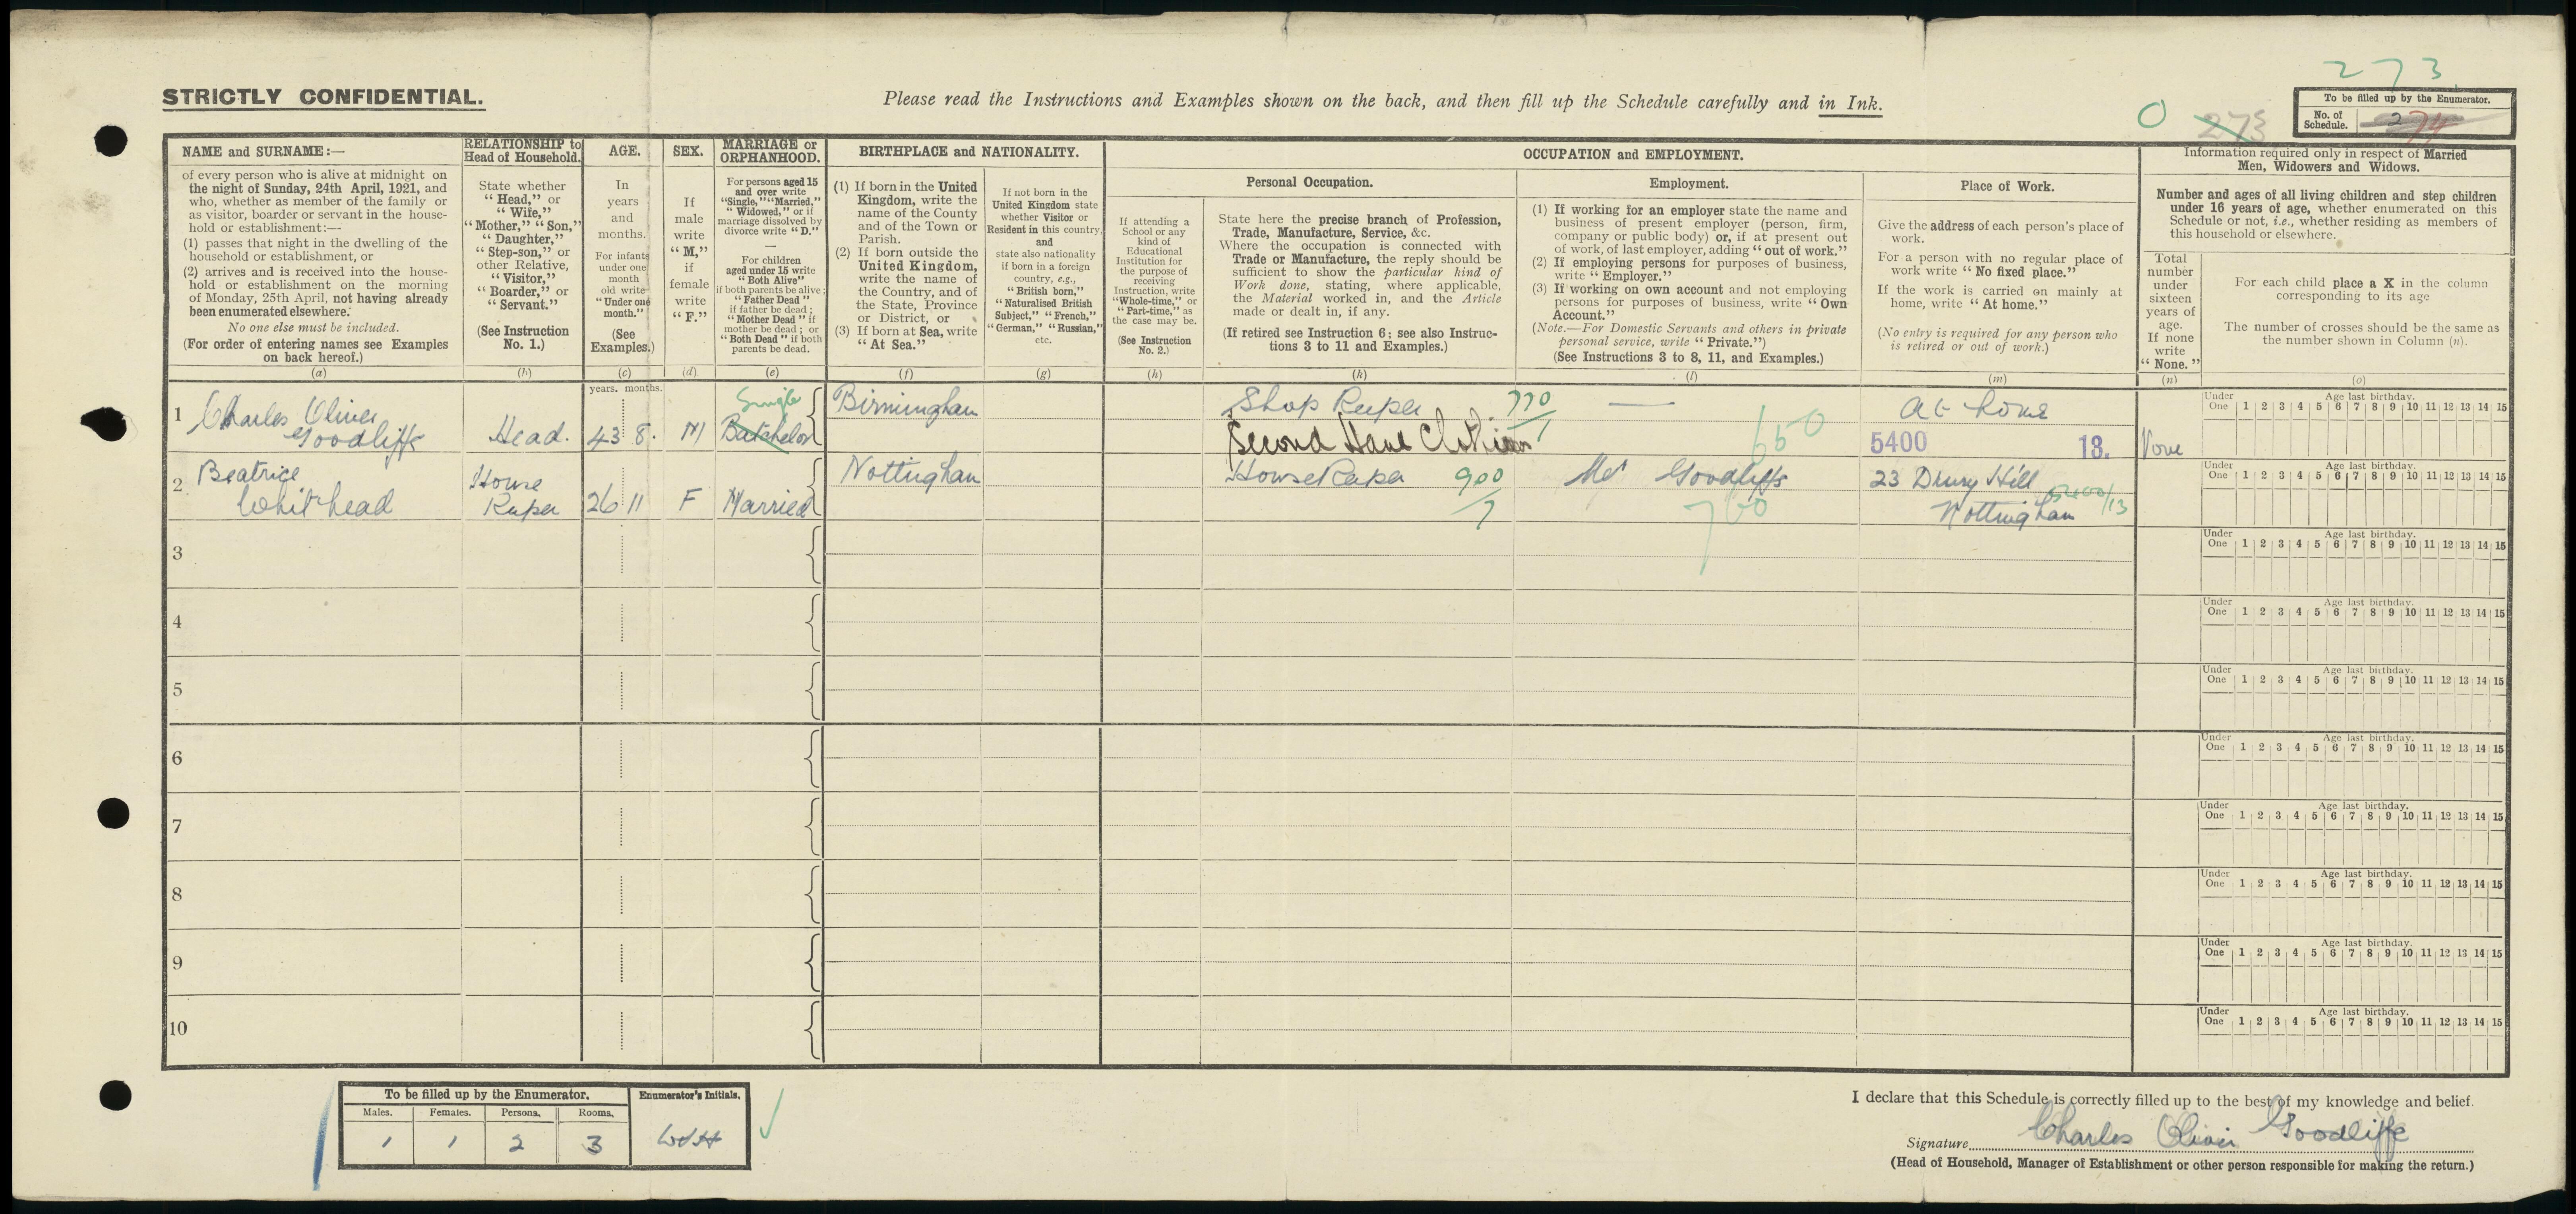 273
STRICTLY CONFIDENTIAL.
Please read the Instructions and Examples shown on the back, and then fill up the Schedule carefully and in Ink.
0
273
To be filled up by the Enumerator.
No. of Schedule.
274
NAME and SURNAME:—
of every person who is alive at midnight on
the night of Sunday, 24th April, 1921, and
who, whether as member of the family or
as visitor, boarder or servant in the house-
hold or establishment:—
(1) passes that night in the dwelling of the
household or establishment, or
(2) arrives and is received into the house-
hold or establishment on the morning
of Monday, 25th April, not having already
been enumerated elsewhere.
No one else must be included.
(For order of entering names see Examples
on back hereof.)
(a)
RELATIONSHIP to
Head of Household.
State whether
"Head," or
"Wife,"
"Mother," "Son,"
"Daughter,"
"Step-son," or
other Relative,
"Visitor,"
"Boarder," or
"Servant."
(See Instruction
No. 1.)
(b)
AGE.
In
years
and
months.
For infants
under one
month
old write
"Under one
month."
(See
Examples.)
(c)
SEX.
If
male
write
"M,"
if
female
write
"F."
(d)
MARRIAGE or
ORPHANHOOD.
For persons aged 15
and over write
"Single," "Married,"
"Widowed," or if
marriage dissolved by
divorce write "D."
—
For children
aged under 15 write
"Both Alive"
if both parents be alive;
"Father Dead"
if father be dead;
"Mother Dead" if
mother be dead; or
"Both Dead" if both
parents be dead.
(e)
BIRTHPLACE and NATIONALITY.
(1) If born in the United
Kingdom, write the
name of the County
and of the Town or
Parish.
(2) If born outside the
United Kingdom,
write the name of
the Country, and of
the State, Province
or District, or
(3) If born at Sea, write
"At Sea."
(f)
If not born in the
United Kingdom state
whether Visitor or
Resident in this country,
and
state also nationality
if born in a foreign
country, e.g.,
"British born,"
"Naturalised British
Subject," "French,"
"German," "Russian,"
etc.
(g)
OCCUPATION and EMPLOYMENT.
If attending a
School or any
kind of
Educational
Institution for
the purpose of
receiving
Instruction, write
"Whole-time," or
"Part-time," as
the case may be.
(See Instruction
No. 2.)
(h)
Personal Occupation.
State here the precise branch of Profession,
Trade, Manufacture, Service, &c.
Where the occupation is connected with
Trade or Manufacture, the reply should be
sufficient to show the particular kind of
Work done, stating, where applicable,
the Material worked in, and the Article
made or dealt in, if any.
(If retired see Instruction 6; see also Instruc-
tions 3 to 11 and Examples.)
(k)
Employment.
(1) If working for an employer state the name and
business of present employer (person, firm,
company or public body) or, if at present out
of work, of last employer, adding "out of work."
(2) If employing persons for purposes of business,
write "Employer."
(3) If working on own account and not employing
persons for purposes of business, write "Own
Account."
(Note.—For Domestic Servants and others in private
personal service, write "Private.")
(See Instructions 3 to 8, 11, and Examples.)
(l)
Place of Work.
Give the address of each person's place of
work.
For a person with no regular place of
work write "No fixed place."
If the work is carried on mainly at
home, write "At home."
(No entry is required for any person who
is retired or out of work.)
(m)
Information required only in respect of Married
Men, Widowers and Widows.
Number and ages of all living children and step children
under 16 years of age, whether enumerated on this
Schedule or not, i.e., whether residing as members of
this household or elsewhere.
Total
number
under
sixteen
years of
age.
If none
write
"None."
(n)
For each child place a X in the column
corresponding to its age
The number of crosses should be the same as
the number shown in Column (n).
(o)
years. months.
1 Charles Oliver Goodliffe
Head.
43 8.
M
Single
Batchelor
Birmingham
Shop Keeper
770/1
Second Hand Clothier
—
650
At home
5400 13.
None
Under One 1 2 3 4 5 6 7 8 9 10 11 12 13 14 15
Age last birthday.
2 Beatrice Whitehead
House Keeper
26 11
F
Married
Nottingham
House Keeper
900/7
Mr Goodliffe
760
23 Drury Hill
Nottingham
5400/13
Under One 1 2 3 4 5 6 7 8 9 10 11 12 13 14 15
Age last birthday.
3
Under One 1 2 3 4 5 6 7 8 9 10 11 12 13 14 15
Age last birthday.
4
Under One 1 2 3 4 5 6 7 8 9 10 11 12 13 14 15
Age last birthday.
5
Under One 1 2 3 4 5 6 7 8 9 10 11 12 13 14 15
Age last birthday.
6
Under One 1 2 3 4 5 6 7 8 9 10 11 12 13 14 15
Age last birthday.
7
Under One 1 2 3 4 5 6 7 8 9 10 11 12 13 14 15
Age last birthday.
8
Under One 1 2 3 4 5 6 7 8 9 10 11 12 13 14 15
Age last birthday.
9
Under One 1 2 3 4 5 6 7 8 9 10 11 12 13 14 15
Age last birthday.
10
Under One 1 2 3 4 5 6 7 8 9 10 11 12 13 14 15
Age last birthday.
To be filled up by the Enumerator.
Enumerator's Initials.
Males. Females. Persons. Rooms.
1 1 2 3
WJH
I declare that this Schedule is correctly filled up to the best of my knowledge and belief.
Signature Charles Oliver Goodliffe
(Head of Household, Manager of Establishment or other person responsible for making the return.)